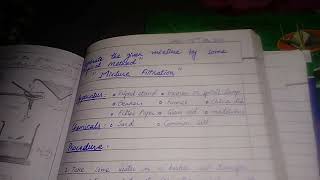 the given mixture by some
physical method"
" Mixture Filtration "
Apparatus : • Tripod stand • Burner or spirit lamp
• Beakers • Funnel • China dish
• Filter Paper • Glass rod
Chemicals : • Sand • Common salt
Procedure :
1. Take some water in a beaker and